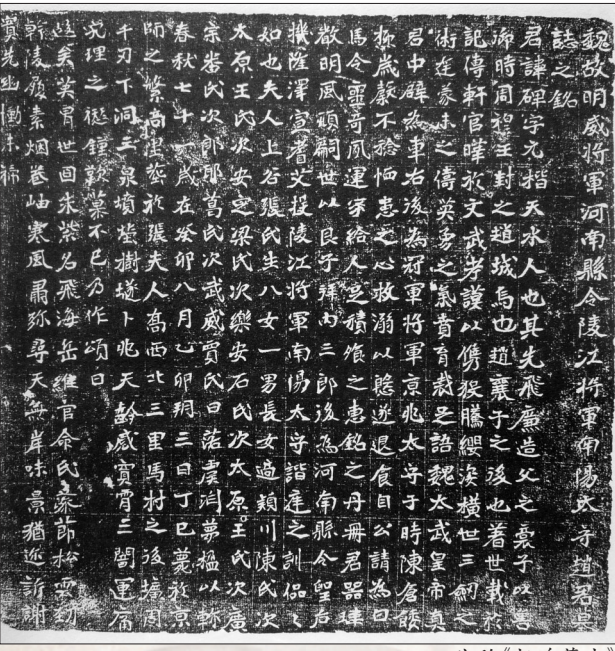 魏故明威將軍河南縣令陵江將軍南陽太守趙君墓
誌之銘
君諱碑字元指天水人也其先飛廉造父之裔子以善
御時周穆王封之趙城焉也趙襄子之後也著世載於
記傳軒官曄於文武考謨以儁騰纓渙橫世三劒之
術蒙求之儔英勇之氣賁育哉足語魏太武皇帝真
君中辟為車右後為冠軍將軍京兆太守于時陳倉
歲不捻恤患之心救溺以懃遂退食自公請為白
馬令靈奇夙運家給人足積飧之惠銘之丹冊君器瑋
叡明風頑嗣世以良子拜內三郎後為河南縣令聖后
撫薩澤宣耆艾授陵江將軍南陽太守諧達之訓侃々
如也夫人上谷張氏生八女一男長女適潁川陳氏次
太原王氏次安定梁氏次樂安石氏次太原王氏次廣
宗潘氏次郎耶葛氏次武威賈氏日落虞渕夢楹以軫
春秋七十一歲在癸卯八月乙卯朔三日丁巳薨於京
師之繁尚里塟於張夫人高西北三里馬村之後壙周
千刃下洞三泉墳塋樹卜兆天齡感寳霄二闇運痛
窕理之鍾歎慕不已乃作頌曰
矣英胄世固朱紫名飛海岳維官命氏泰節松雲勁
幹陵巔素烟卷岫寒風肅弥尋天無岸味景猶逝訢謝
賓先幽慟未締